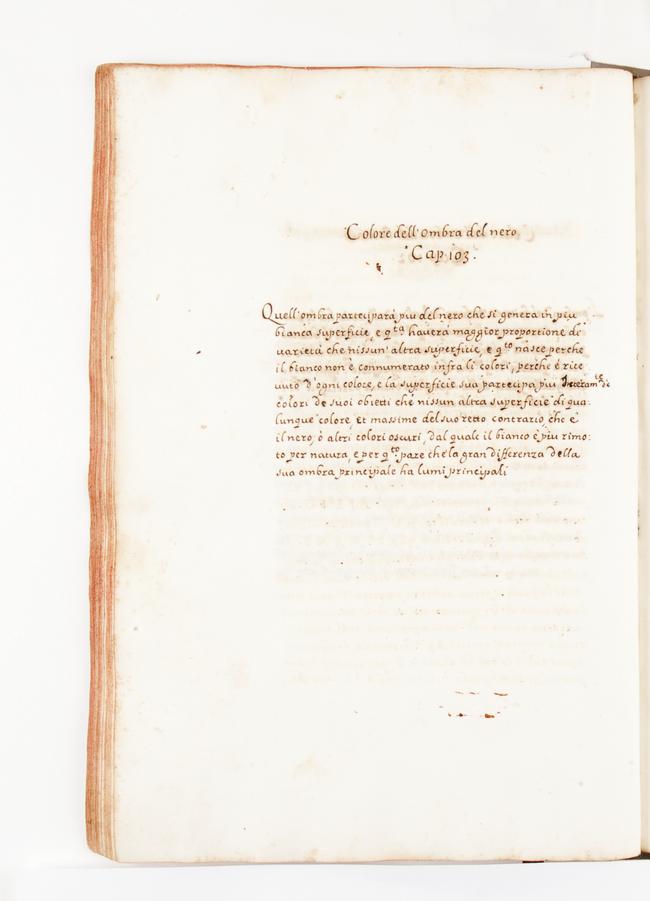 Colore dell'ombra del nero
Cap 103.
Quell'ombra participarà piu del nero che si genera in piu
bianca superficie, e q.ta haverà maggior proporzione di
varietà che nissun' altra superficie, e q.to nasce perche
il bianco non è connumerato infra li colori, perche è rice
vuto d'ogni colore, e la superficie sua partecipa piu Interam.te de
colori de suoi obietti che nissun altra superficie di qua:
lunque colore, et massime del suo retto contrario, che è
il nero, ò altri colori oscuri, dal quale il bianco è piu rimo:
to per natura, e per q.to pare che la gran differenza della
sua ombra principale ha lumi principali